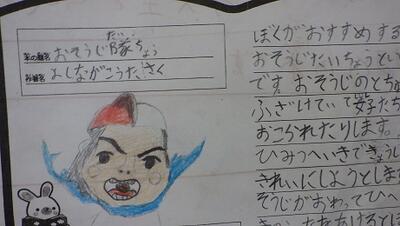 本の題名 おそうじ隊ちょう
たい
作者名 よしながこうたく さく
ぼくがおすすめする
おそうじたいちょうとい
です。おそうじのとちゅ
ふざけていて女子たち
おこられたりします。
ひみつへいきできょうし
きれいにしようとしま
そうじがおわってひへ